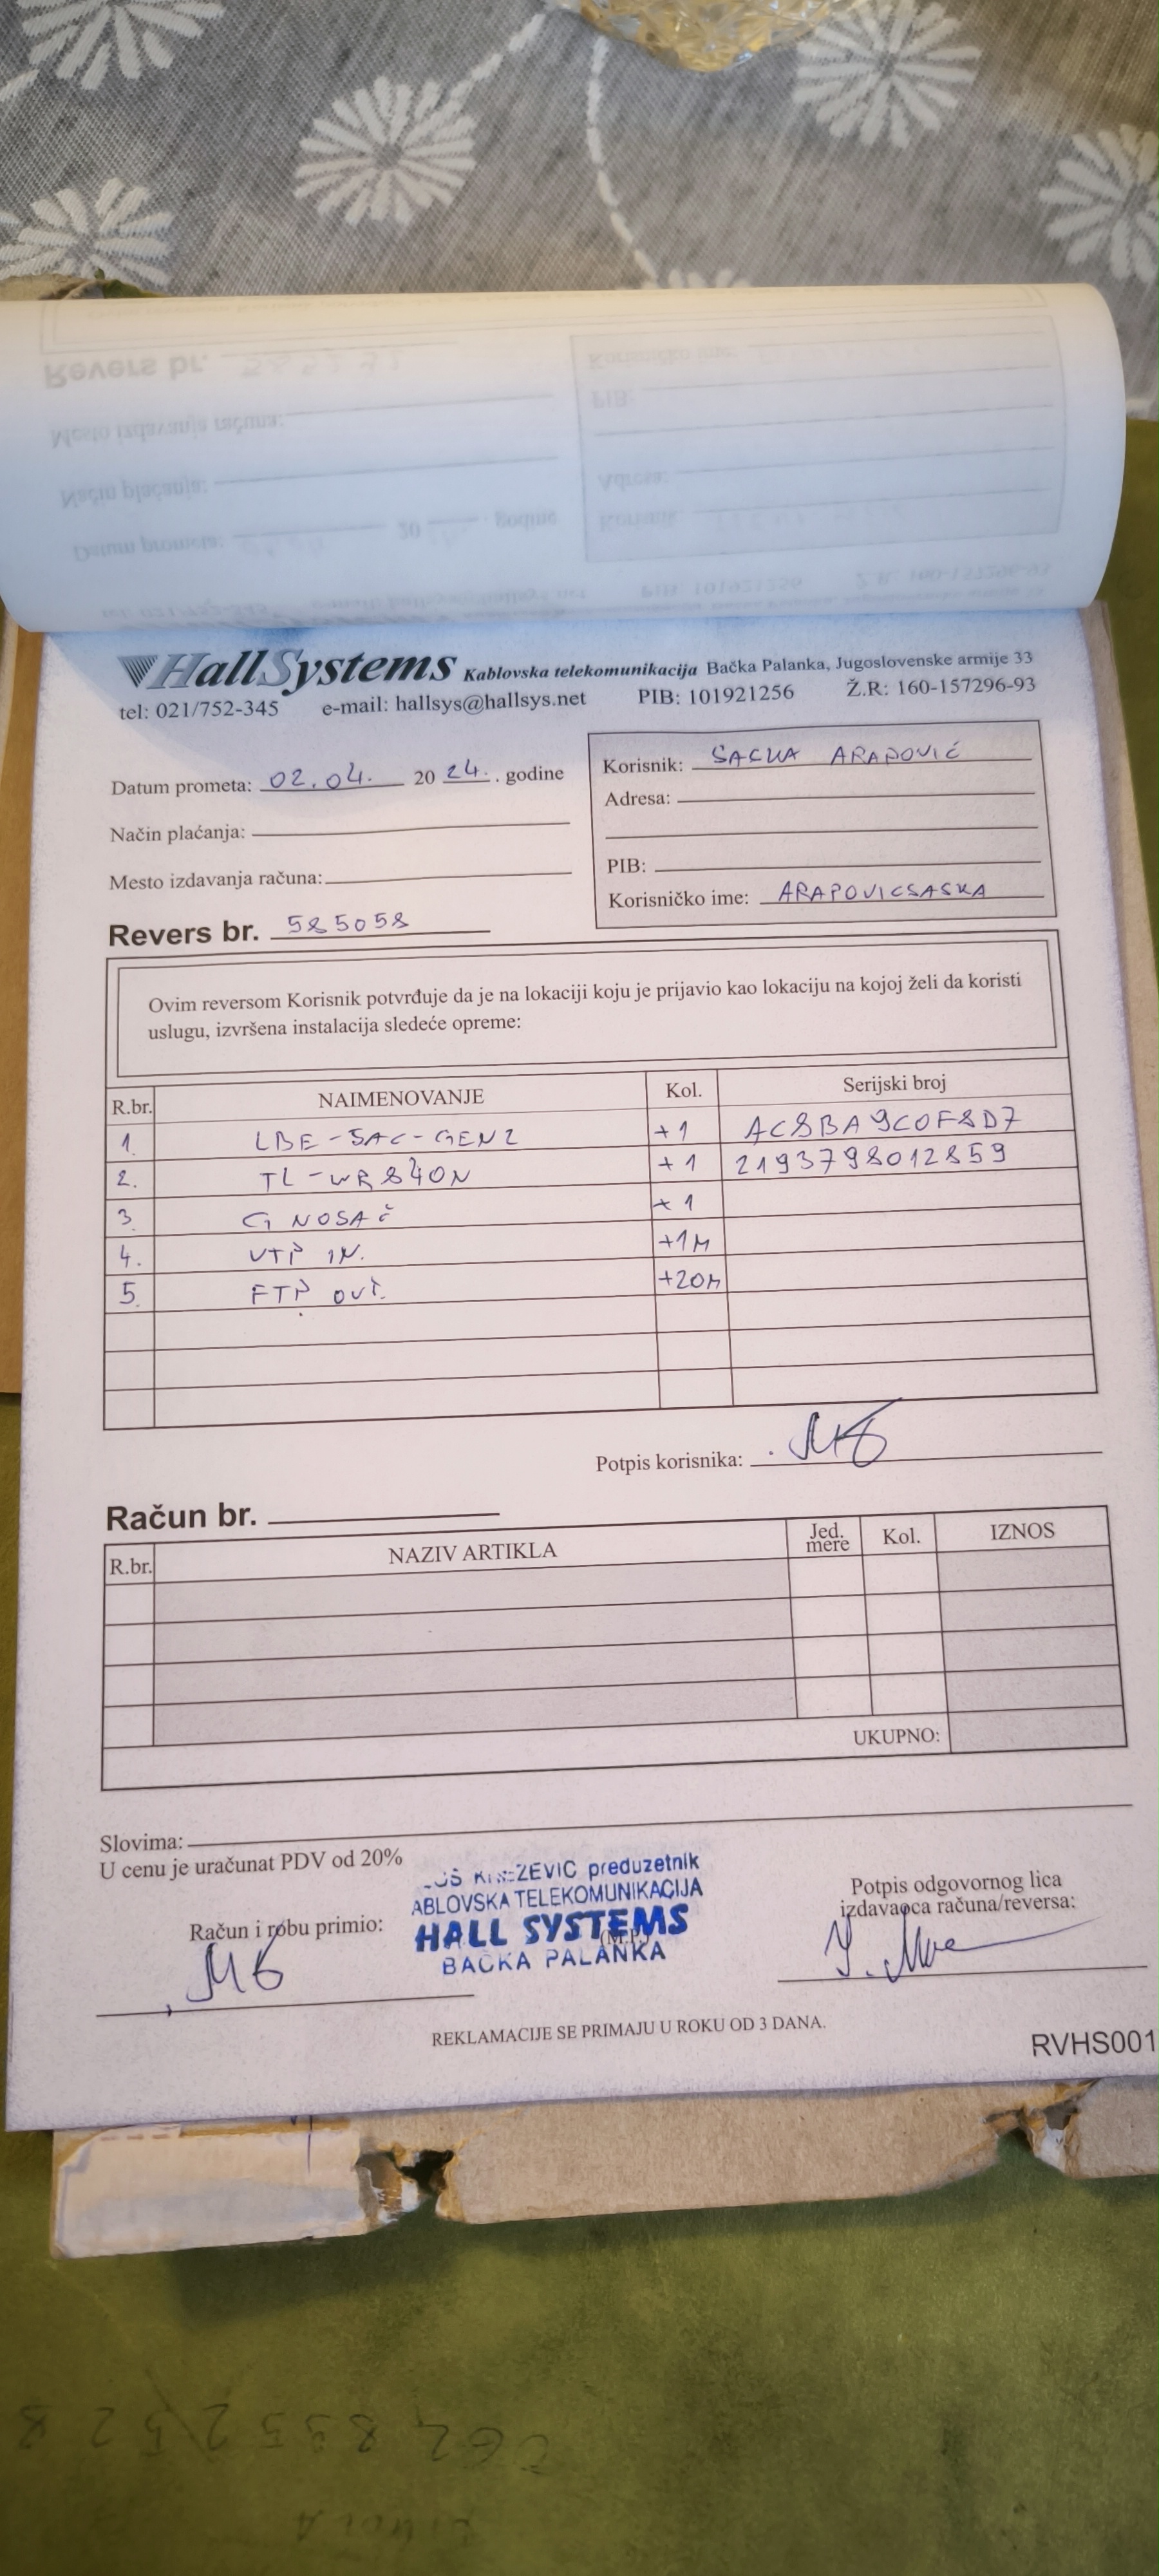 HallSystems Kablovska telekomunikacija Bačka Palanka, Jugoslovenske armije 33
tel: 021/752-345 e-mail: hallsys@hallsys.net PIB: 101921256 Ž.R: 160-157296-93
Datum prometa: 02.04. 20 24. . godine
Način plaćanja:
Mesto izdavanja računa:
Korisnik: SAŠKA ARAPOVIĆ
Adresa:
PIB:
Korisničko ime: ARAPOVICSASKA
Revers br. 585058
Ovim reversom Korisnik potvrđuje da je na lokaciji koju je prijavio kao lokaciju na kojoj želi da koristi
uslugu, izvršena instalacija sledeće opreme:
R.br. NAIMENOVANJE Kol. Serijski broj
1. LBE-5AC-GEN2 +1 AC8BA9C0F8D7
2. TL-WR840N +1 2193798012859
3. G NOSAČ +1
4. UTP IN. +1M
5. FTP OUT. +20M
Potpis korisnika:
Račun br.
R.br. NAZIV ARTIKLA Jed. mere Kol. IZNOS
UKUPNO:
Slovima:
U cenu je uračunat PDV od 20%
preduzetnik
ABLOVSKA TELEKOMUNIKACIJA
HALL SYSTEMS
BAČKA PALANKA
(M.P.)
Račun i robu primio:
Potpis odgovornog lica
izdavaoca računa/reversa:
REKLAMACIJE SE PRIMAJU U ROKU OD 3 DANA.
RVHS001